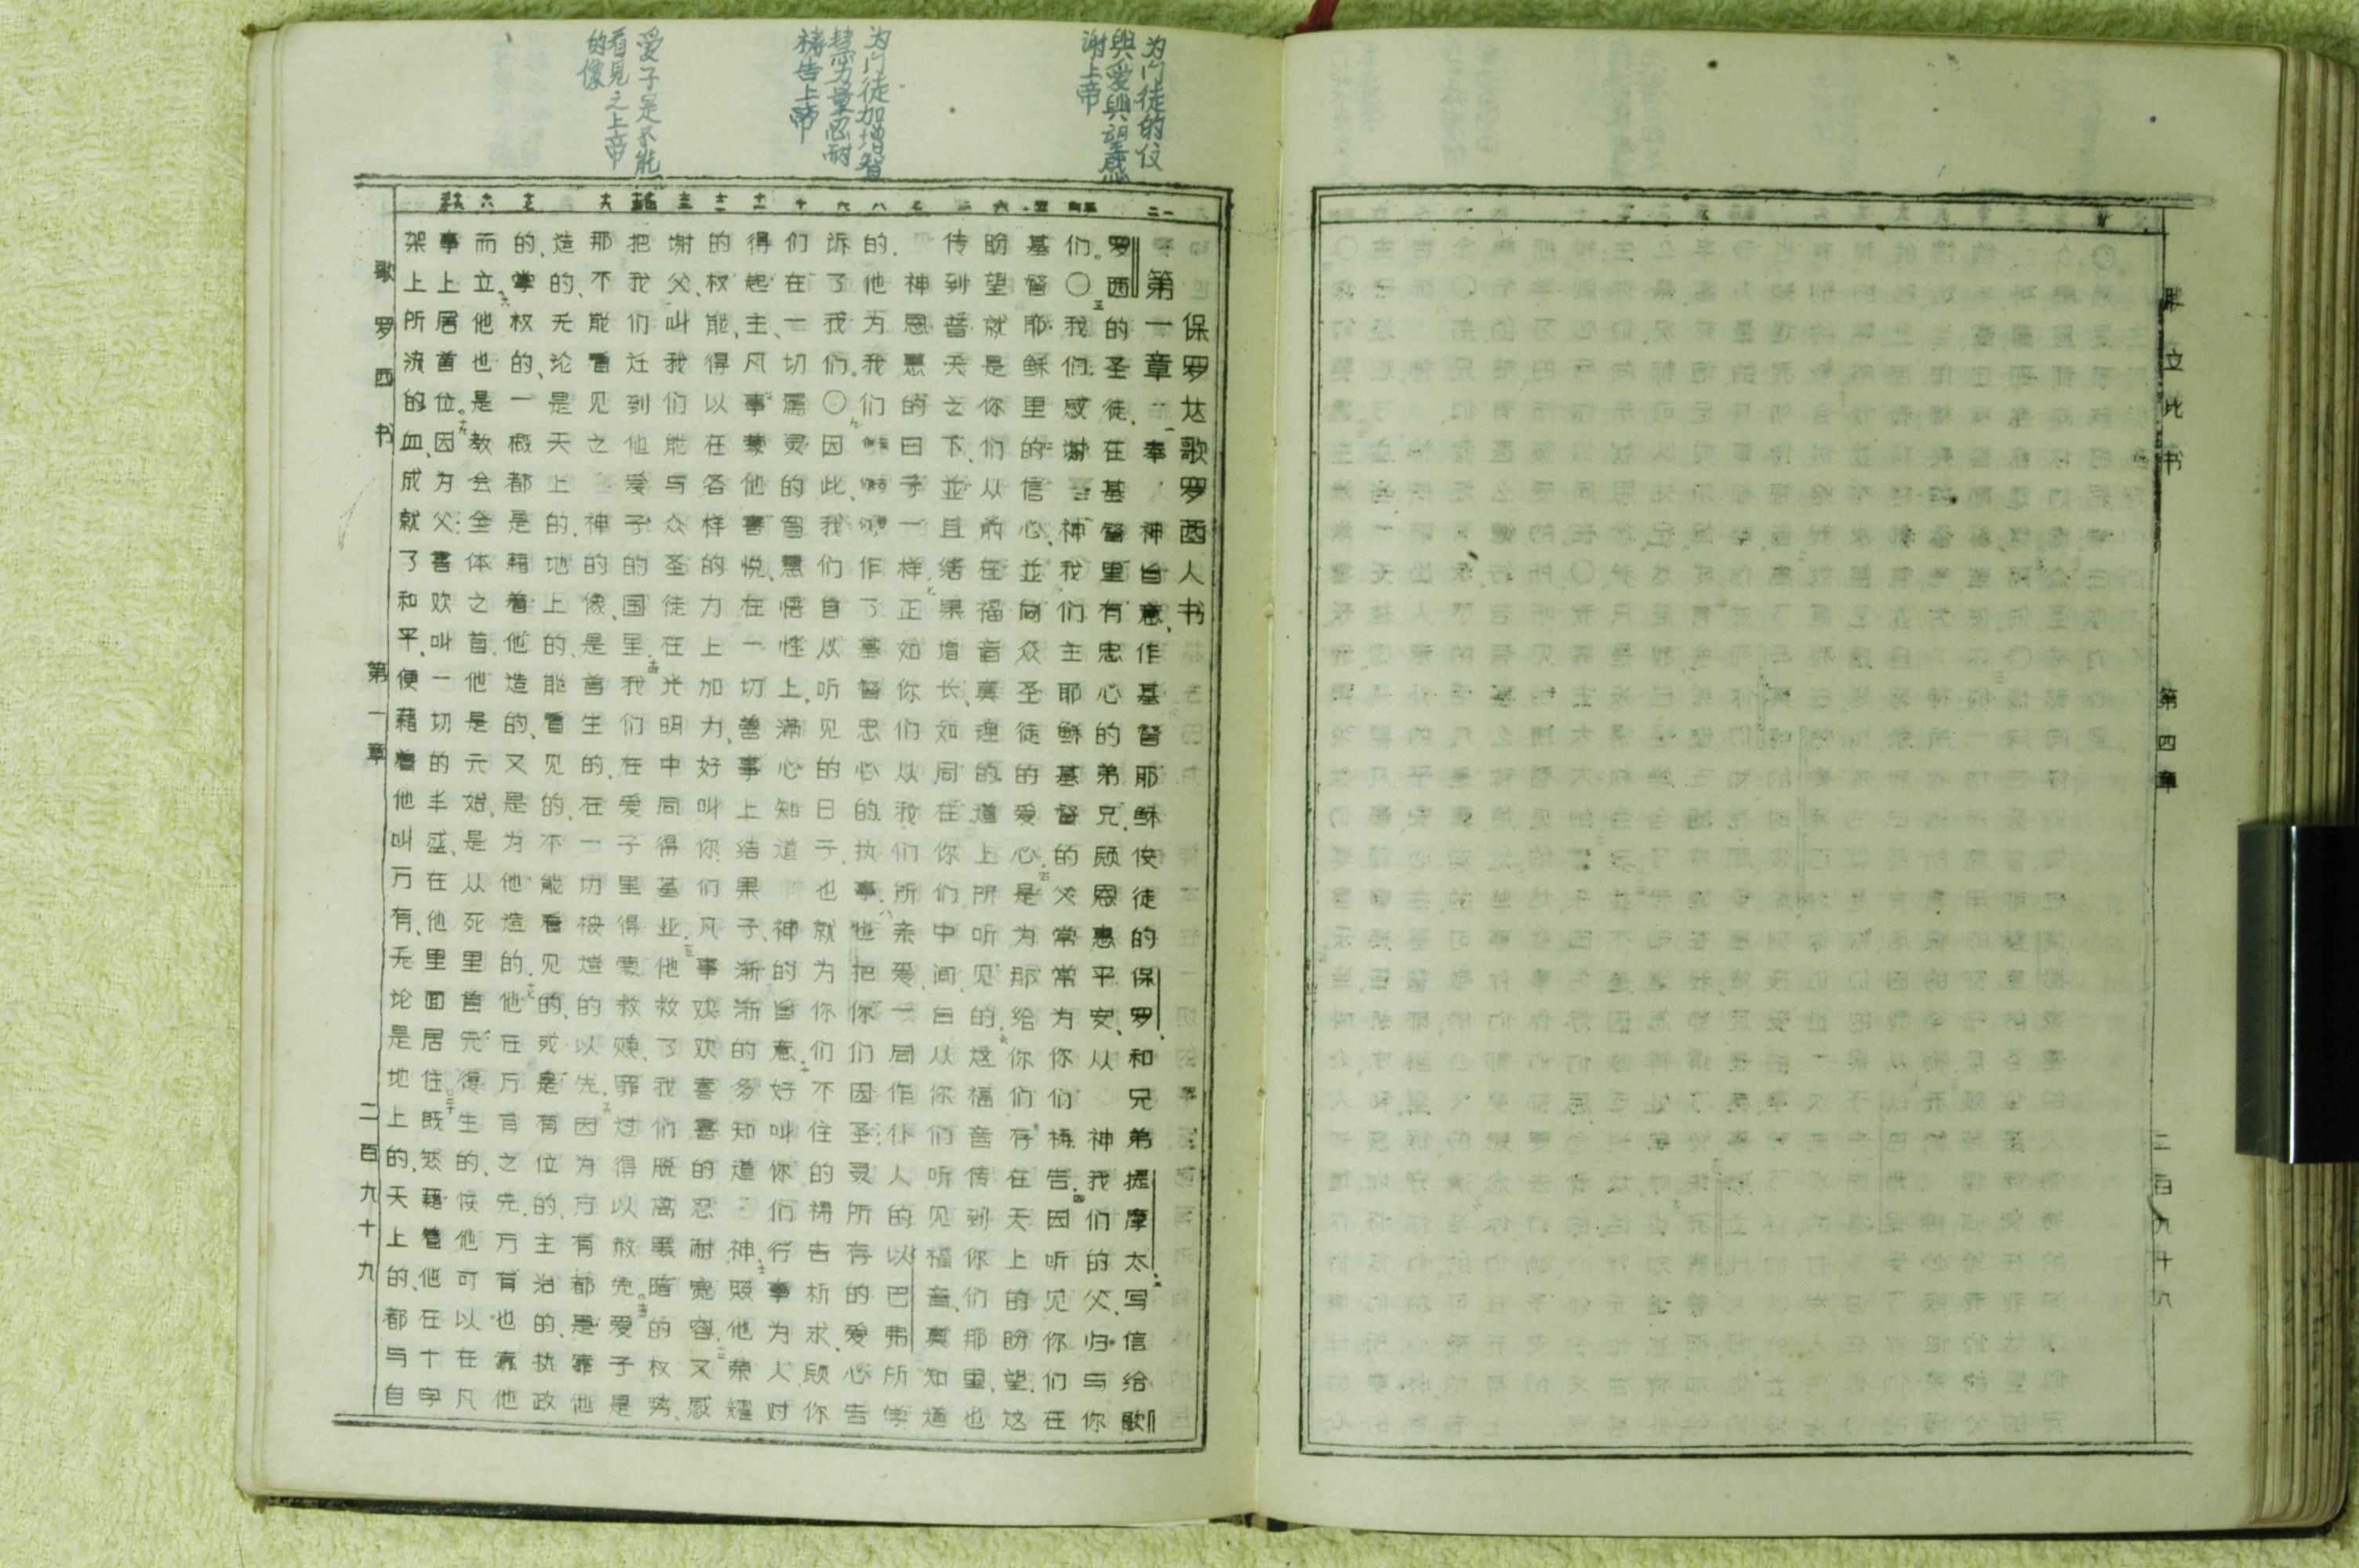 腓立比书 第四章 二百九十八
为门徒的信
與爱與望感
谢上帝
为门徒加增智
慧力量忍耐
祷告上帝
爱子是不能
看见之上帝
的像
保罗达歌罗西人书
第一章 一奉 神旨意、作基督耶稣使徒的保罗、和兄弟提摩太、二写信给歌
罗西的圣徒、在基督里有忠心的弟兄、愿恩惠平安、从 神我们的父、归与你
们。〇三我们感谢 神我们主耶稣基督的父、常常为你们祷告、四因听见你们在
基督耶稣里的信心、並向众圣徒的爱心、五是为那给你们存在天上的盼望、这
盼望就是你们、从前在福音真理的道上所听见的、六这福音传到你们那里、也
传到普天之下、並且结果增长、如同在你们中间、自从你们听见福音、真知道
神恩惠的日子一样、七正如你们从我们所亲爱、一同作仆人的以巴弗所学
的、他为我们作了基督忠心的执事、八也把你们因圣灵所存的爱心告
诉了我们。〇九因此、我们自从听见的日子、也就为你们不住的祷告祈求、愿你
们在一切属灵的智慧悟性上、满心知道 神的旨意、十好叫你们行事为人、对
得起主、凡事蒙他喜悦、在一切善事上结果子、渐渐的多知道 神、十一照他荣耀
的权能、得以在各样的力上加力、好叫你们凡事欢欢喜喜的忍耐宽容、十二又感
谢父、叫我们能与众圣徒在光明中同得基业、十三他救了我们脱离黑暗的权势、
把我们迁到他爱子的国里、十四我们在爱子里得蒙救赎、罪过得以赦免。十五爱子是
那不能看见之神的像、是首生的、在一切被造的以先、十六因为万有都是靠他
造的、无论是天上的、地上的、能看见的、不能看见的、或是有位的、主治的、执政
的、掌权的、一概都是藉着他造的、又是为他造的、十七他在万有之先、万有也靠他
而立、十八他也是教会全体之首、他是元始、是从死里首先复生的、使他可以在凡
事上居首位。十九因为父喜欢叫一切的丰盛、在他里面居住、二十既然藉着他在十字
架上所流的血、成就了和平、便藉着他叫万有、无论是地上的、天上的、都与自
歌罗西书 第一章 二百九十九